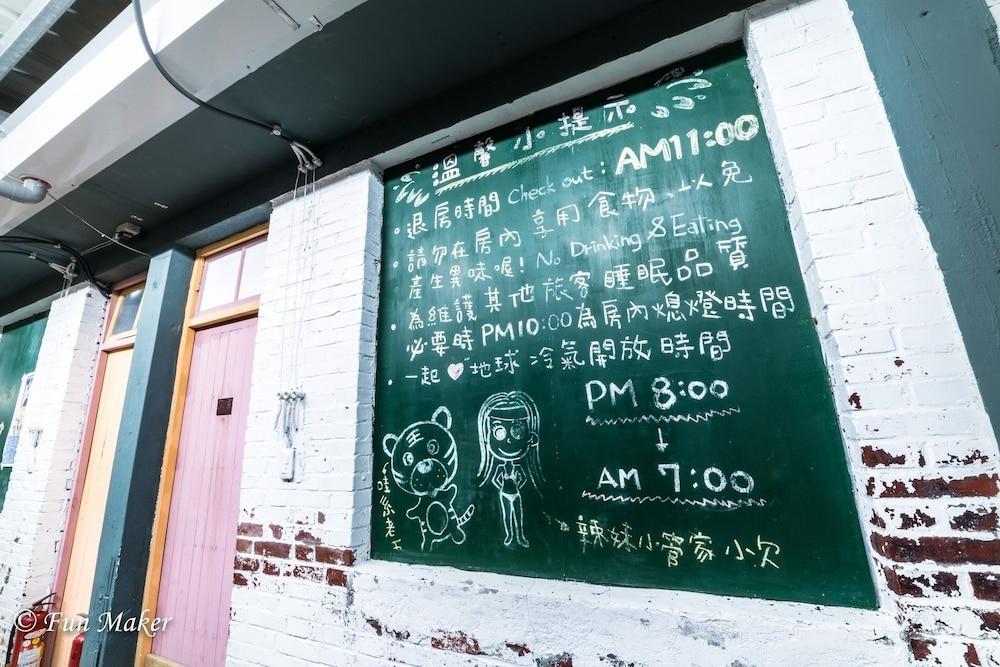 溫馨小提示
·退房時間 Check out: AM11:00
·請勿在房內享用食物、以免
產生異味喔! No Drinking & Eating
·為維護其他旅客睡眠品質
必要時PM10:00為房內熄燈時間
·一起♥地球 冷氣開放時間
PM 8:00
↓
AM 7:00
辣妹小管家小欠
© Fun Maker